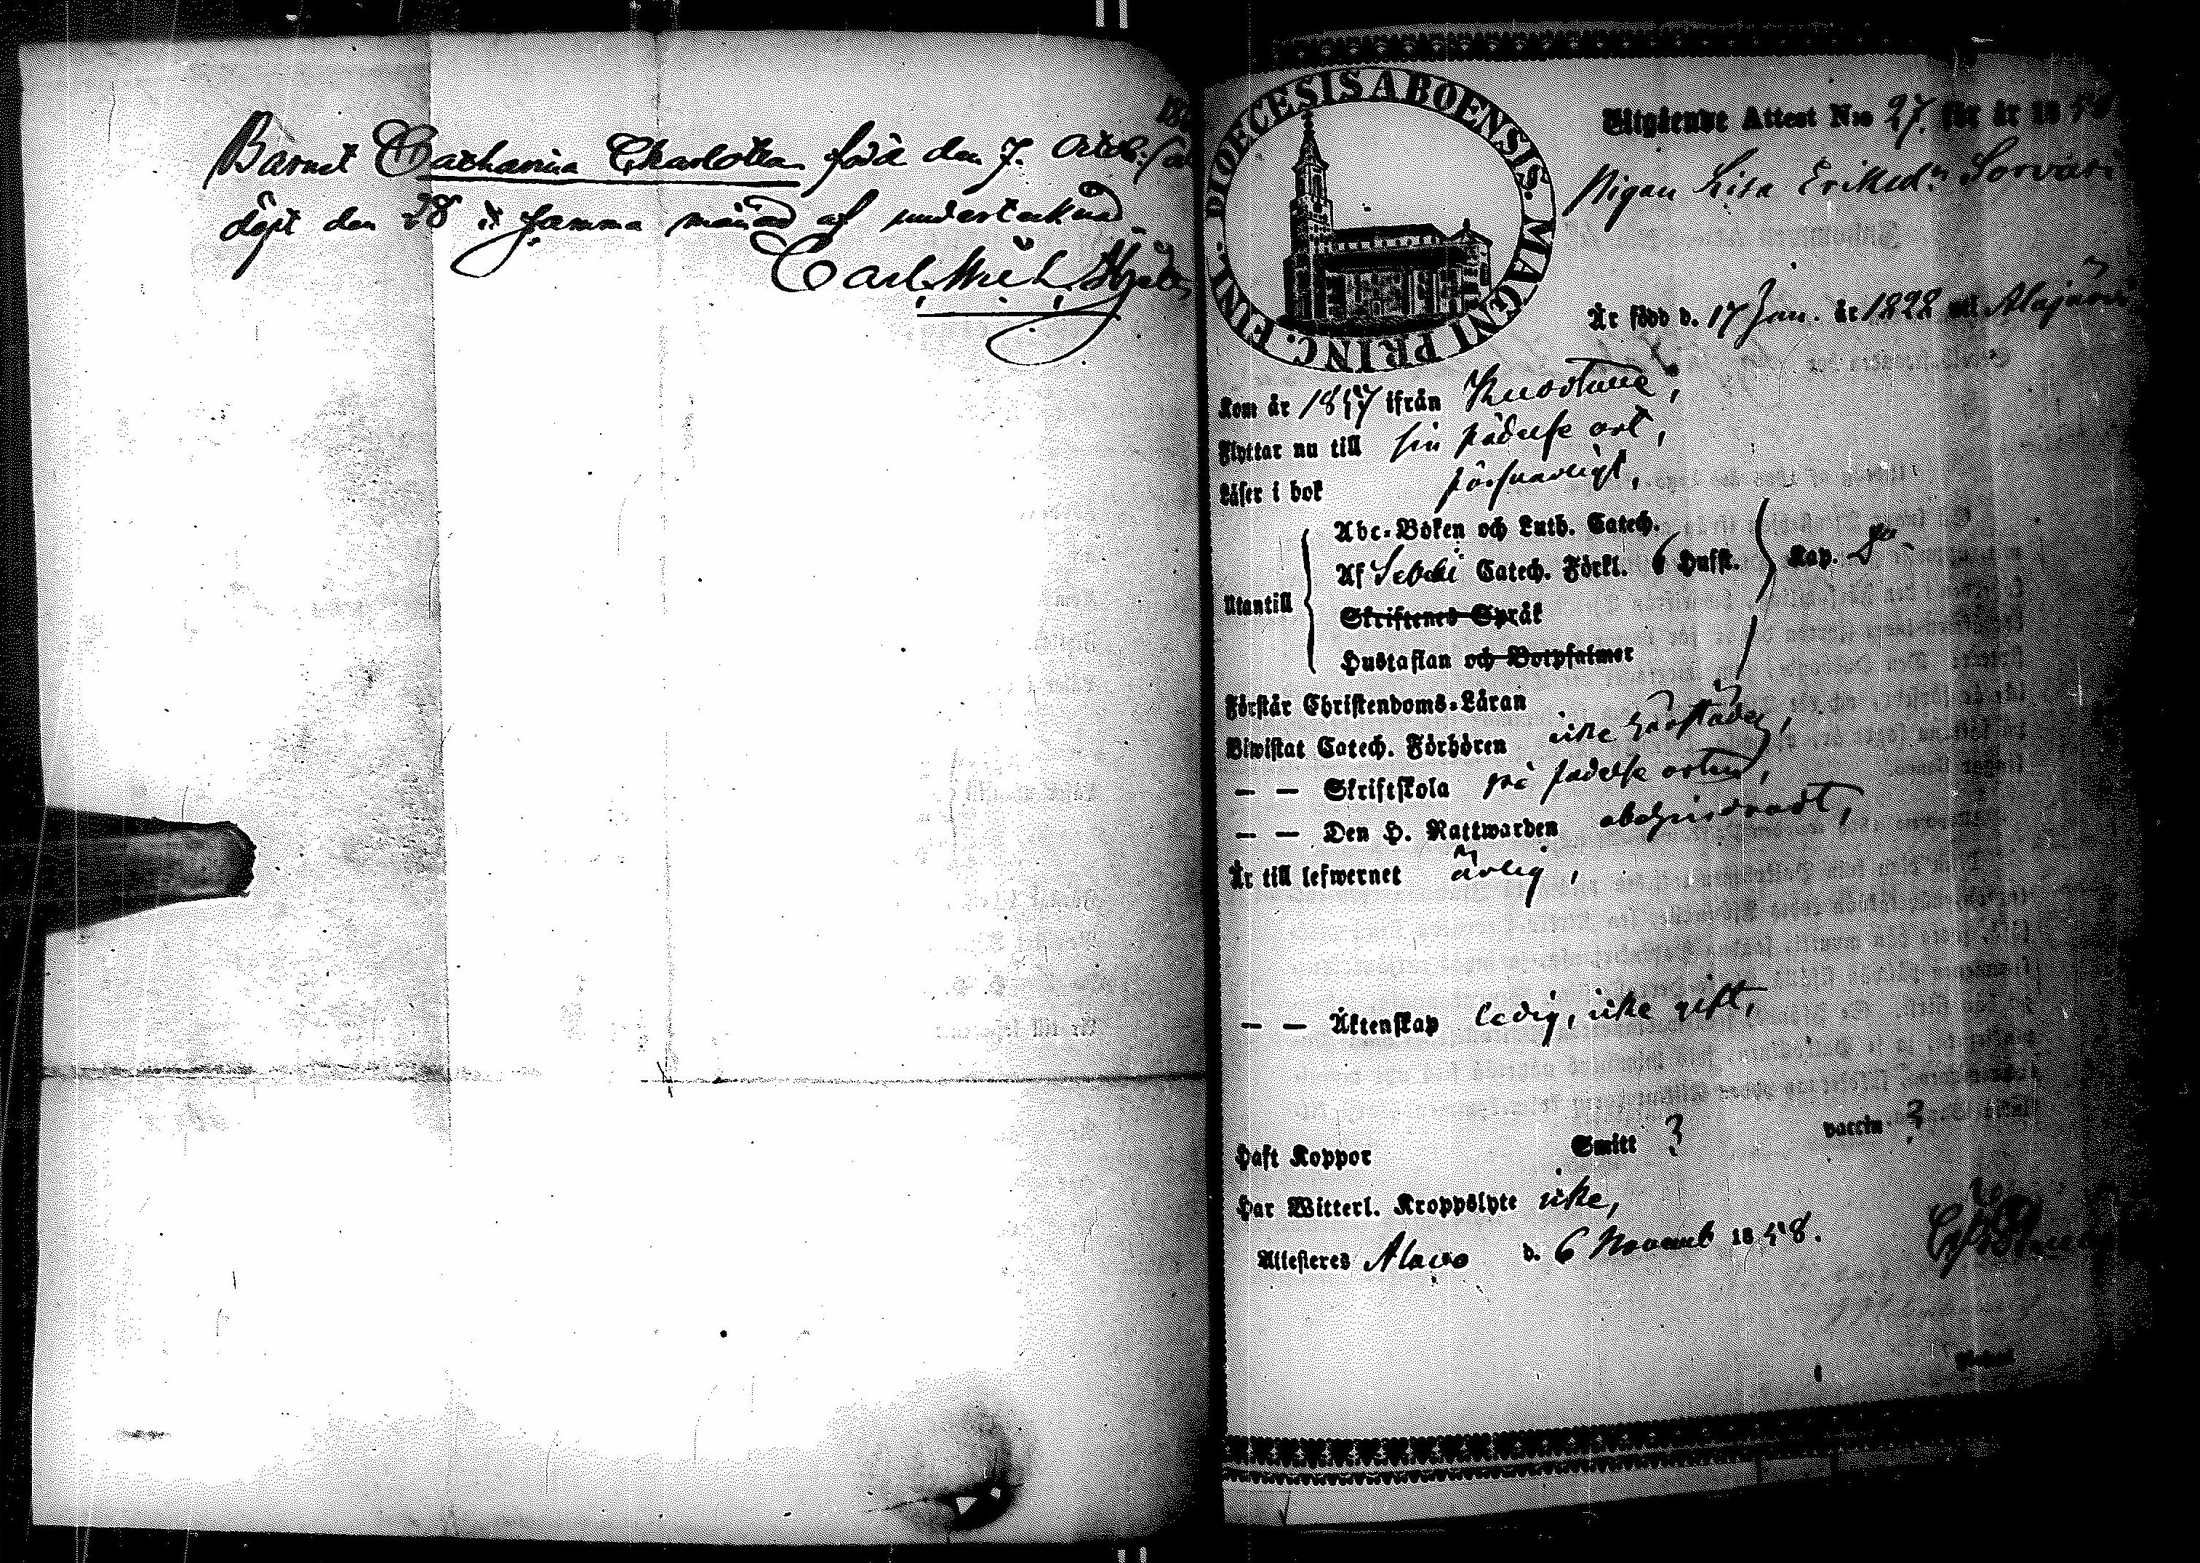 Barnet Catharina Charlotta född den 7. Octob.
döpt den 28 i samma månad af undertecknad
Carl Mich.
DIOECESIS ABOENSIS. MAGNI PRINC. FINL.
Utgående Attest N:o 27. för år 1858
Pigan Lisa Eriksd:r Sorvari
Är född d. 17 Jan. år 1828 uti Alajärvi
Kom år 1857 ifrån Kuortane,
Flyttar nu till sin födelse ort,
Läser i bok försvarligt,
Utantill
Abc-Boken och Luth. Catech.
Af Sebelii Catech. Förkl. 6 Hufst. Kap.
Skriftenes Språk
Hustaflan och Botpsalmer
Förstår Christendoms-Läran
Biwistat Catech. Förhören icke härstädes,
— — Skriftskola på födelse orten,
— — Den H. Nattwarden obehindradt,
Är till lefwernet ärlig,
— — Äktenskap ledig, icke gift,
Haft Koppor Smitt ? vaccin ?
Har Witterl. Kroppslyte icke,
Attesteras Alavo d. 6 Novemb 1858.